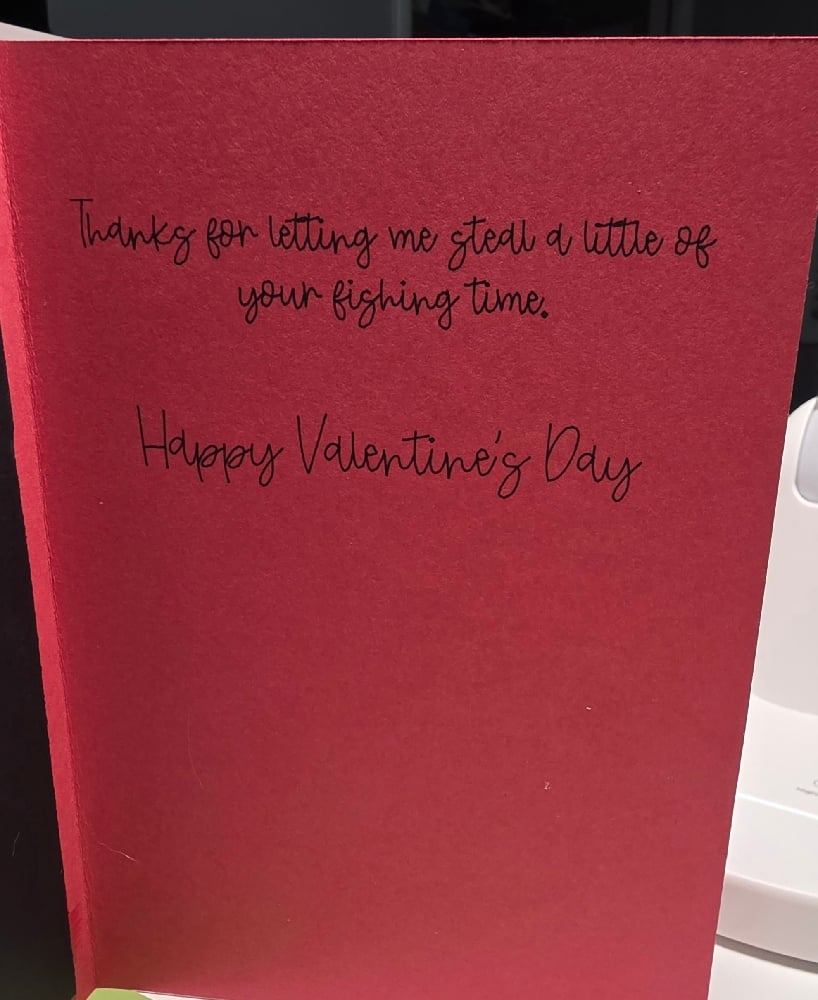 Thanks for letting me steal a little of
your fishing time.
Happy Valentine's Day